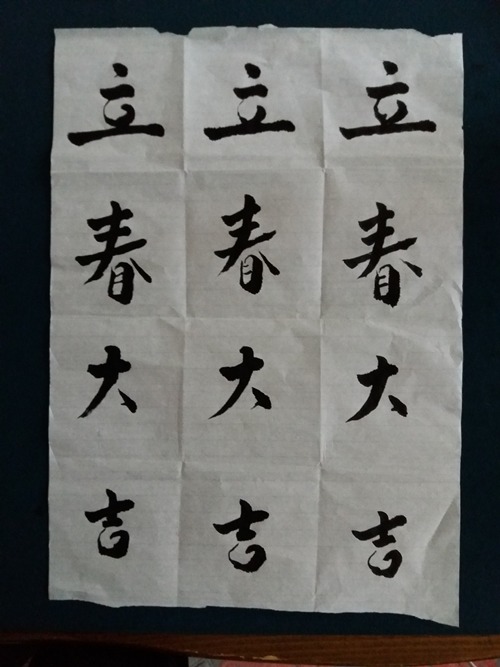 立春大吉
立春大吉
立春大吉